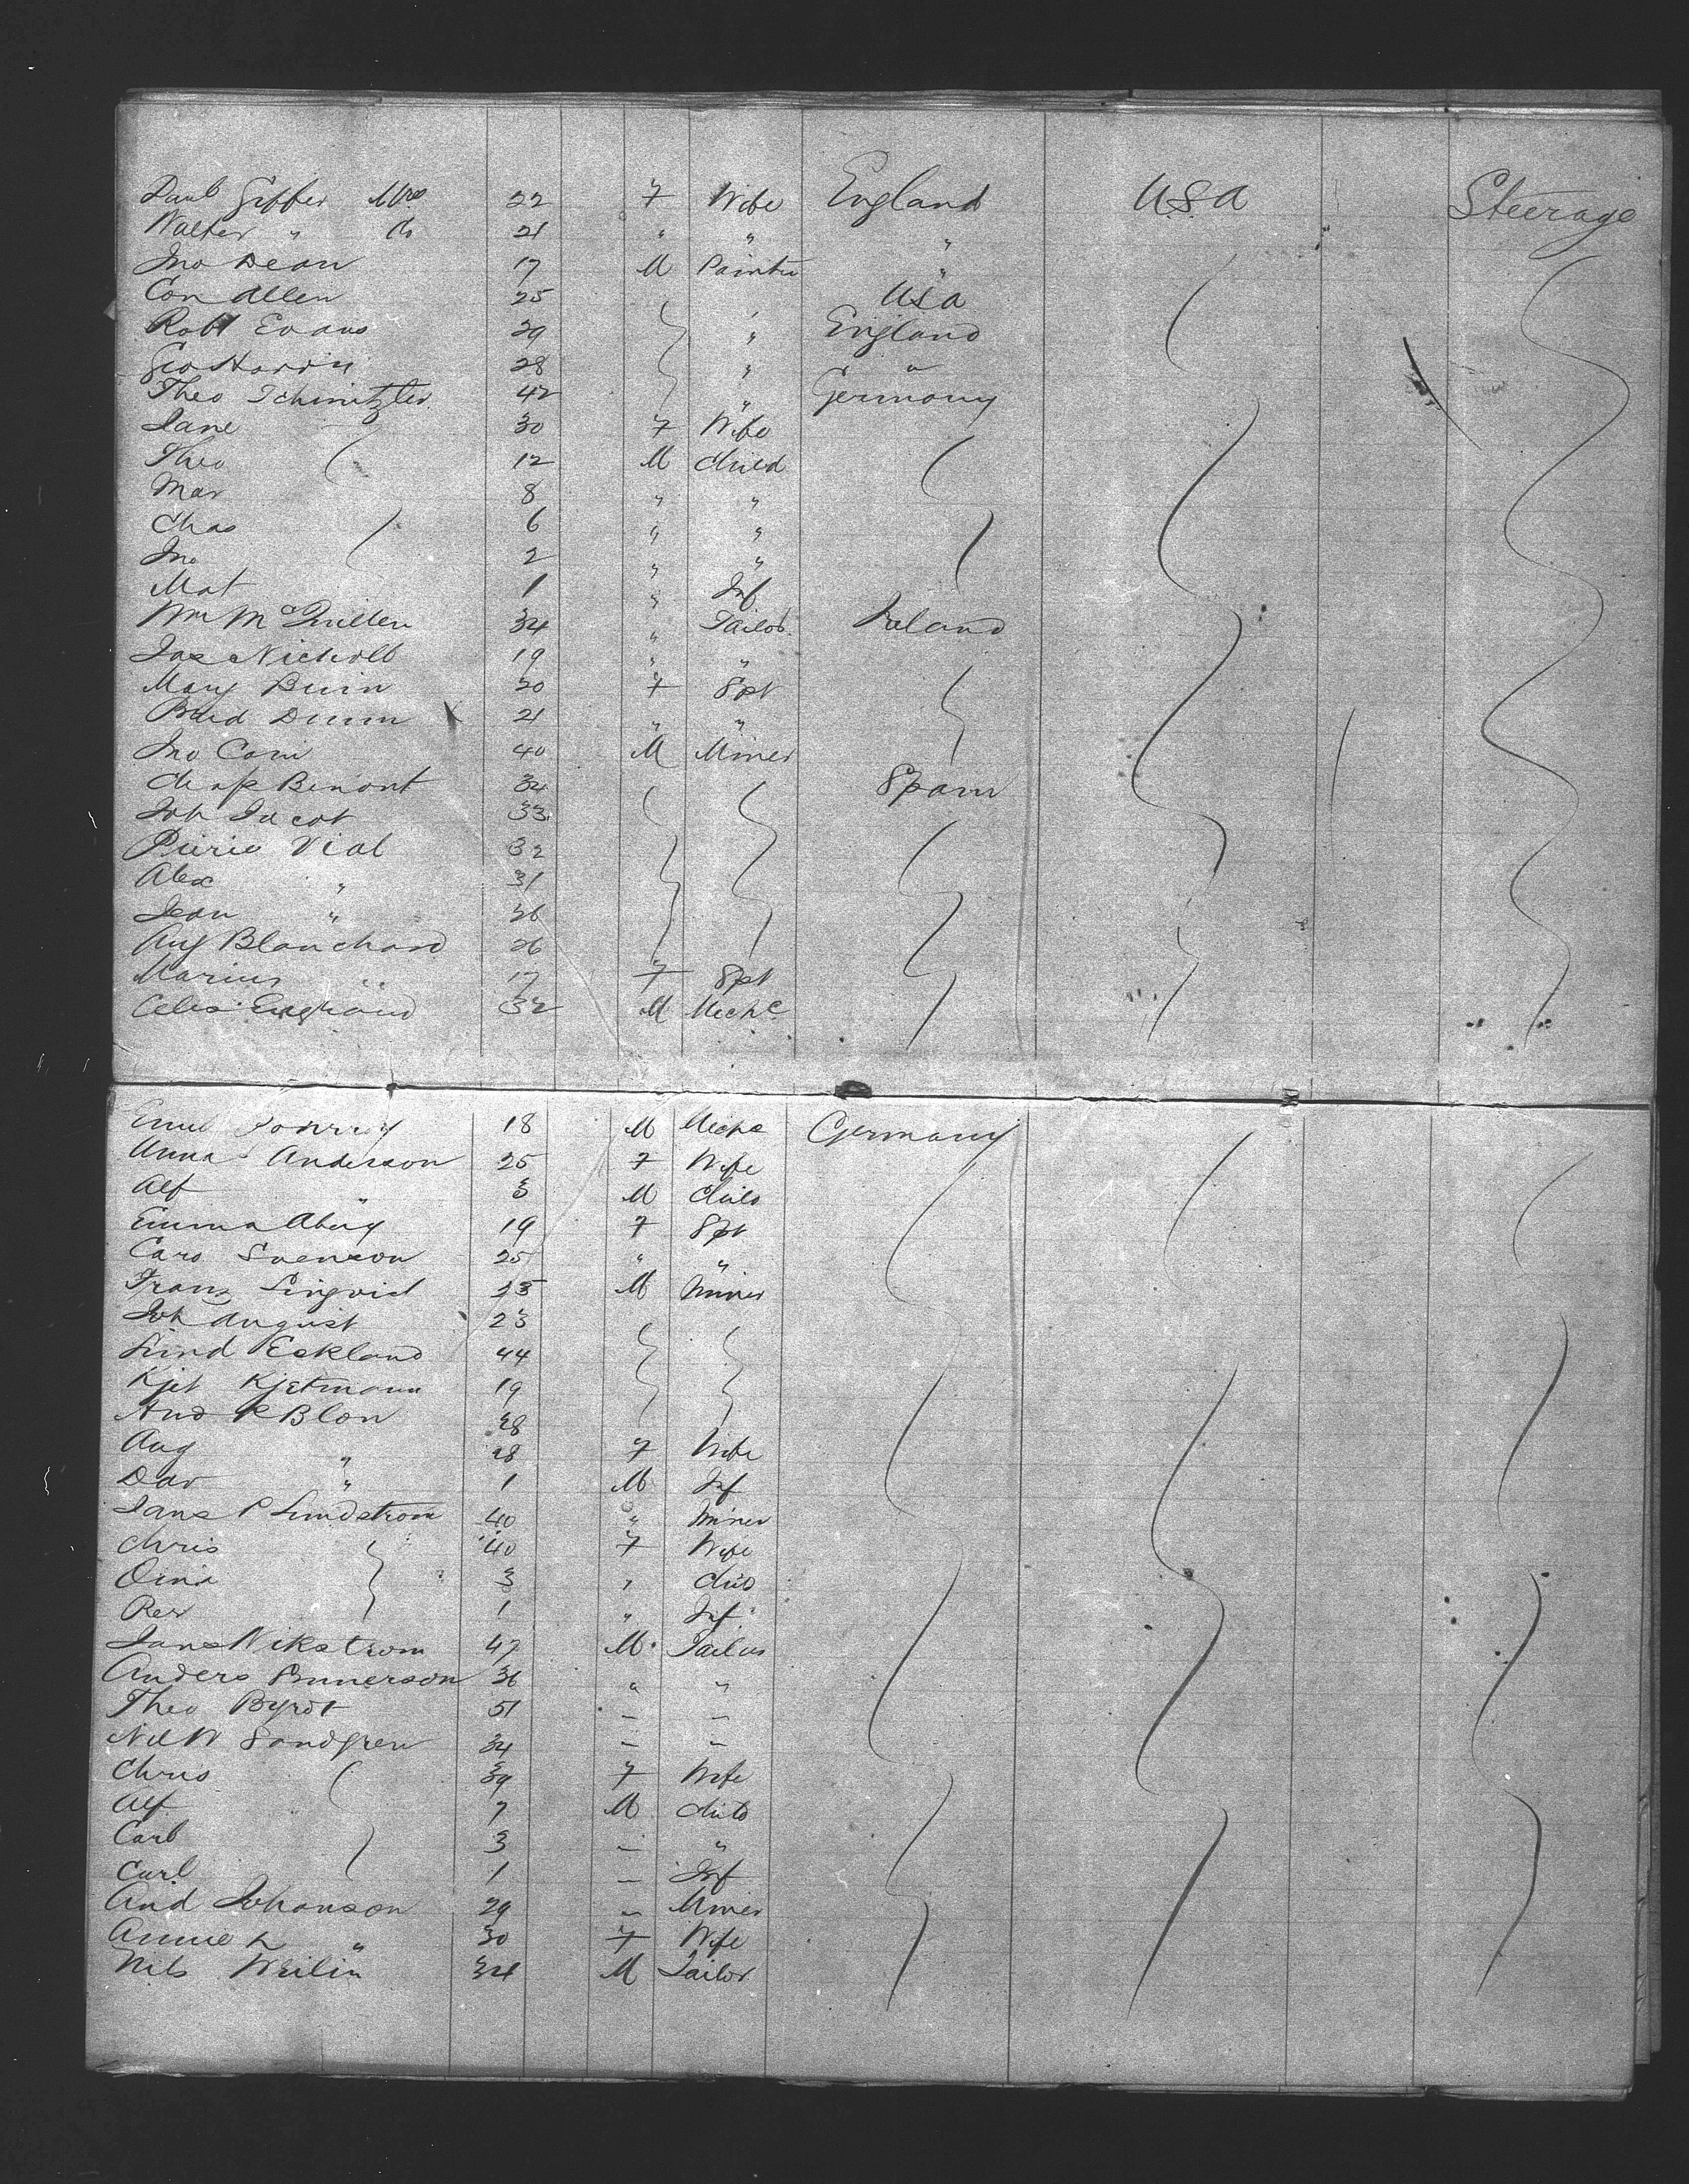 Danl Giffer Mrs 22 F Wife England USA Steerage
Walter " Do 21 " " "
Jno Dean 17 M Painter "
Con Allen 25 USA
Robt Evans 29 " England
Geo Harris 28 " "
Theo Schmitzler 42 " Germany
Jane 30 F Wife
Theo 12 M Child
Mar 8 " "
Chas 6 " "
Jno 2 " "
Mat 1 " Inf
Wm McQuillen 34 " Tailor Ireland
Jas Nicholl 19 " "
Mary Burn 20 F Spt
Brid Dunn 21 " "
Jno Coni 40 M Miner
Benont 34 Spain
Joh Jacot 33
Pierre Vial 32
Alex " 31
Jean " 26
Aug Blanchard 26
Marius " 17 F Spt
Celes 32 M Mechc
18 M Mechc Germany
Anna Anderson 25 F Wife
Alf " 3 M Child
Emma 19 F Spt
Caro Svenson 25 " "
Franz Linqvist M Miner
Joh August 23
Lind Eckland 44
Kjet Kjetmann 19
And P Blon 28
Aug " 28 F Wife
Dav " 1 M Inf
Jans P Lindstrom 40 " Miner
Chris 40 F Wife
Oina 3 " Child
1 " Inf
Jans Wikstrom 47 M Tailor
Anders 36 " "
Theo Byrot 51 – –
Nil W Sandgren 34 – –
Chris 39 F Wife
Alf 7 M Child
Carl 3 – "
Curl 1 – Inf
And Johanson 29 – Miner
Annie L " 30 F Wife
Nils Weilin 34 M Tailor